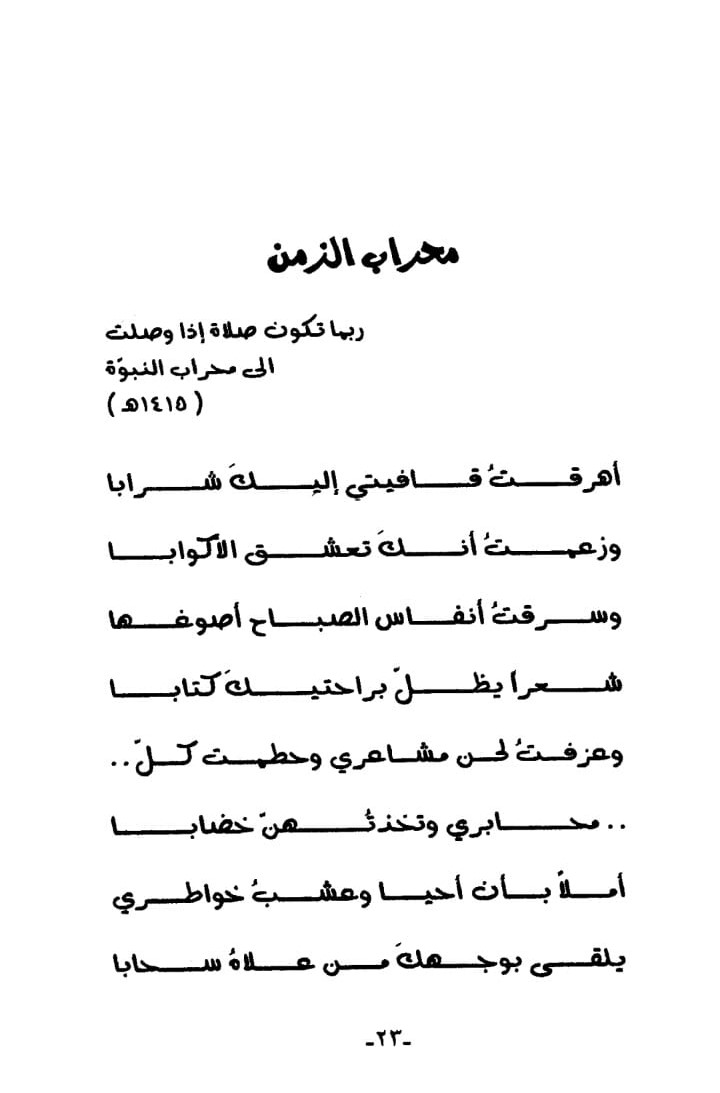 محراب الزمن
ربما تكون صلاة إذا وصلت
الى محراب النبوّة
(١٤١٥هـ)
أهرقتُ قافيتي إليكَ شرابا
وزعمتُ أنكَ تعشق الأكوابا
وسرقتُ أنفاس الصباح أصوغها
شعراً يظلّ براحتيكَ كتابا
وعزفتُ لحن مشاعري وحطمت كلّ..
..محابري وتخذتُهنّ خضابا
أملاً بأن أحيا وعشبُ خواطري
يلقى بوجهكَ من علاهُ سحابا
-٢٣-